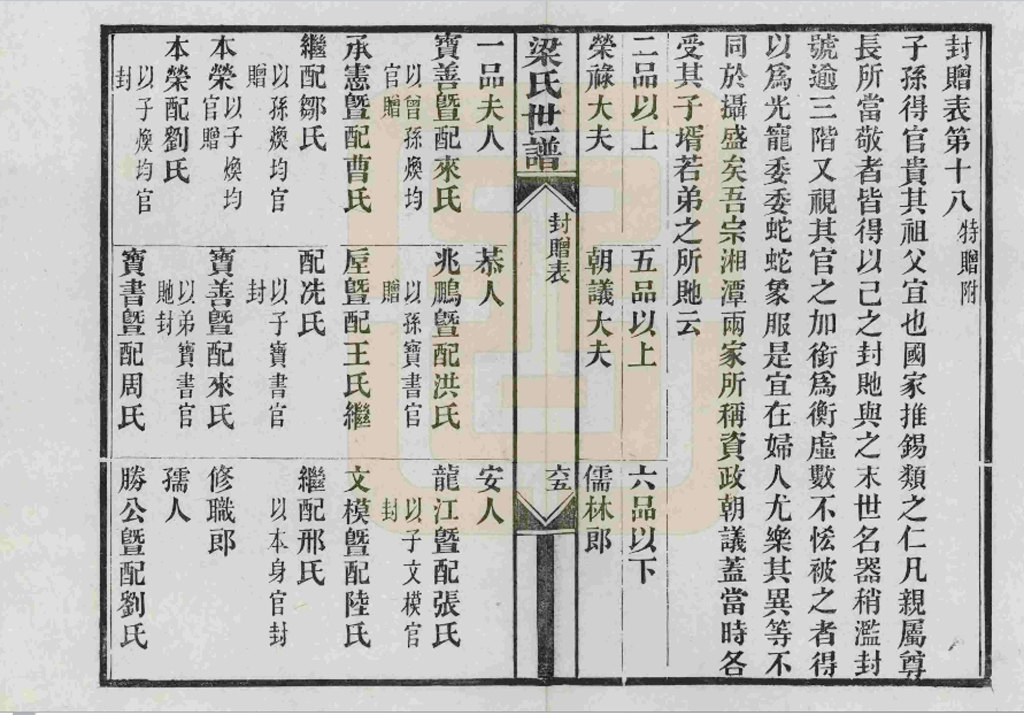 封贈表第十八 特贈附
子孫得官貴其祖父宜也國家推錫類之仁凡親屬尊
長所當敬者皆得以己之封貤與之末世名器稍濫封
號逾三階又視其官之加銜爲衡虛數不恡被之者得
以爲光寵委委蛇蛇象服是宜在婦人尤樂其異等不
同於攝盛矣吾宗湘潭兩家所稱資政朝議蓋當時各
受其子壻若弟之所貤云
二品以上
五品以上
六品以下
榮祿大夫
朝議大夫
儒林郎
梁氏世譜
封贈表
六五
一品夫人
寶善曁配來氏
以曾孫煥均
官贈
承憲曁配曹氏
繼配鄒氏
以孫煥均官
贈
本榮 以子煥均
官贈
本榮配劉氏
以子煥均官
封
恭人
兆鵬曁配洪氏
以孫寶書官
贈
垕曁配王氏繼
配冼氏
以子寶書官
封
寶善曁配來氏
以弟寶書官
貤封
寶書曁配周氏
安人
龍江曁配張氏
以子文模官
封
文模曁配陸氏
繼配邢氏
以本身官封
修職郎
孺人
勝公曁配劉氏